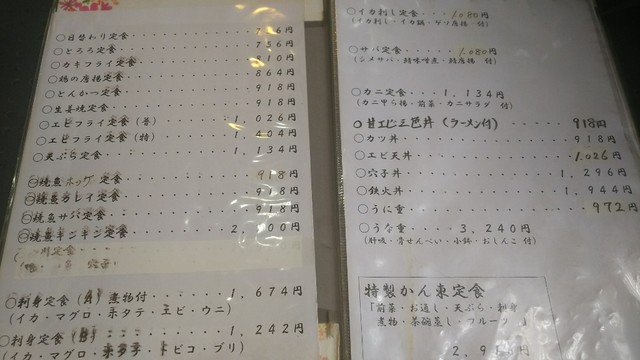 ○日替わり定食 6円
○とろろ定食 756円
○カキフライ定食 10円
○鶏の唐揚定食 864円
○とんかつ定食 918円
○生姜焼定食 918円
○エビフライ定食(普) 1,026円
○エビフライ定食(特) 1,404円
○天ぷら定食 1,134円
○焼魚ホッケ定食 918円
○焼魚カレイ定食 918円
○焼魚サバ定食 918円
○焼魚キンキン定食 2, 00円
川定食
○刺身定食(A) 煮物付 1,674円
(イカ・マグロ・ホタテ・エビ・ウニ)
○刺身定食(B) 1,242円
(イカ・マグロ・トビコ・ブリ)
○イカ刺し定食 1,080円
(イカ刺し・イカ鍋・ゲソ唐揚 付)
○サバ定食 1,080円
(シメサバ・鯖味噌煮・鯖唐揚 付)
○カニ定食 1,134円
(カニ甲ら揚・前菜・カニサラダ 付)
○甘エビ三色丼(ラーメン付) 918円
○カツ丼 918円
○エビ天丼 1,026円
○穴子丼 1,296円
○鉄火丼 1,944円
○うに重 972円
○うな重 3,240円
(肝吸・骨せんべい・小鉢・おしんこ 付)
特製かん東定食
「前菜・お通し・天ぷら・刺身
煮物・茶碗蒸し・フルーツ 」
2,9 円